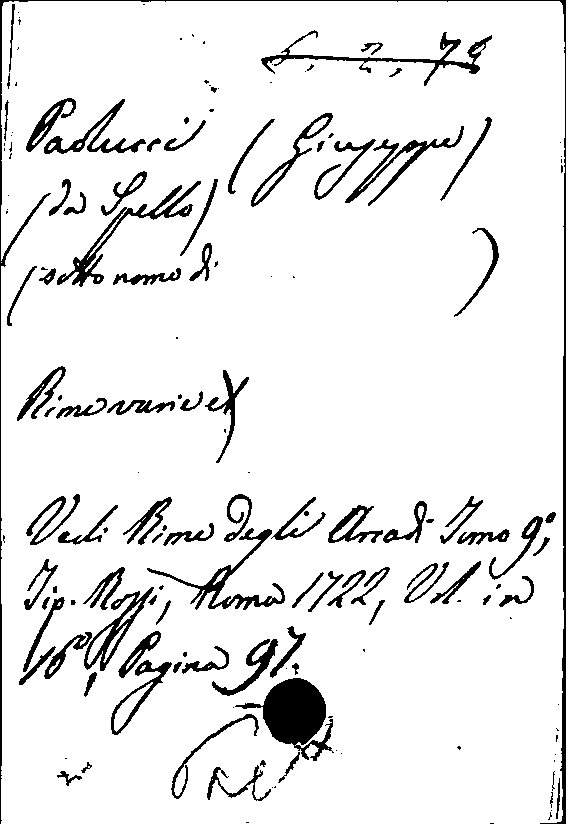 6. 2, 79
Paolucci (Giuseppe)
(da Spello)
(sotto nome di )
Rime varie
Vedi Rime degli Arcadi Tomo 9°,
Tip. Rossi, Roma 1722, Vol. in
16°, Pagina 97.